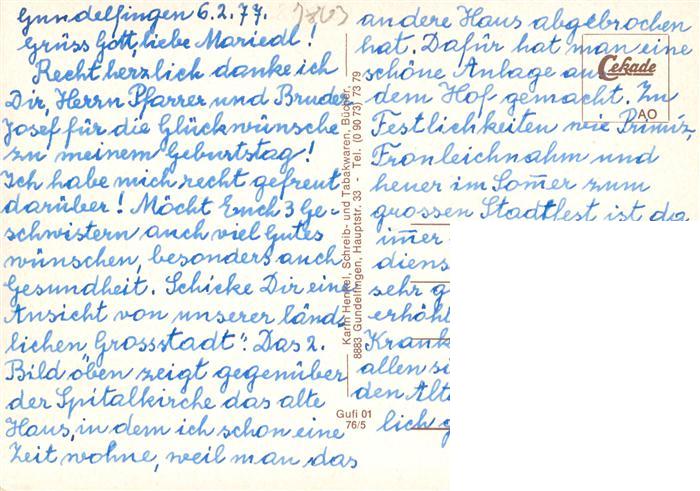 Gundelfingen 6.2.77.
Grüss Gott, liebe Mariedl!
Recht herzlich danke ich
Dir, Herrn Pfarrer und Bruder
Josef für die Glückwünsche
zu meinem Geburtstag!
Ich habe mich recht gefreut
darüber! Möcht Euch 3 Ge-
schwistern auch viel Gutes
wünschen, besonders auch
Gesundheit. Schicke Dir eine
Ansicht von unserer länd-
lichen Grossstadt". Das 2.
Bild oben zeigt gegenüber
der Spitalkirche das alte
Haus, in dem ich schon eine
Zeit wohne, weil man das
Karin Henkel, Schreib- und Tabakwaren, Bücher,
8883 Gundelfingen, Hauptstr. 33 - Tel. (0 90 73) 73 79
Gufi 01
76/5
andere Haus abgebrochen
hat. Dafür hat man eine
schöne Anlage au
dem Hof gemacht. Zu
Festlichkeiten wie Primiz,
Fronleichnam und
heuer im Som̅er zum
grossen Stadtfest ist da
im̅er
diens
sehr g
erhöh
Krank
allen si
den Alte
lich g
Cekade
AO